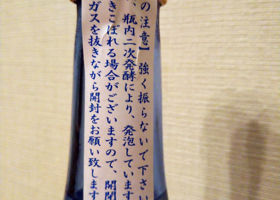 の注意】強く振らないで下さい
、瓶内二次発酵により、発泡しています
きこぼれる場合がございますので、開閉
ガスを抜きながら開封をお願い致します